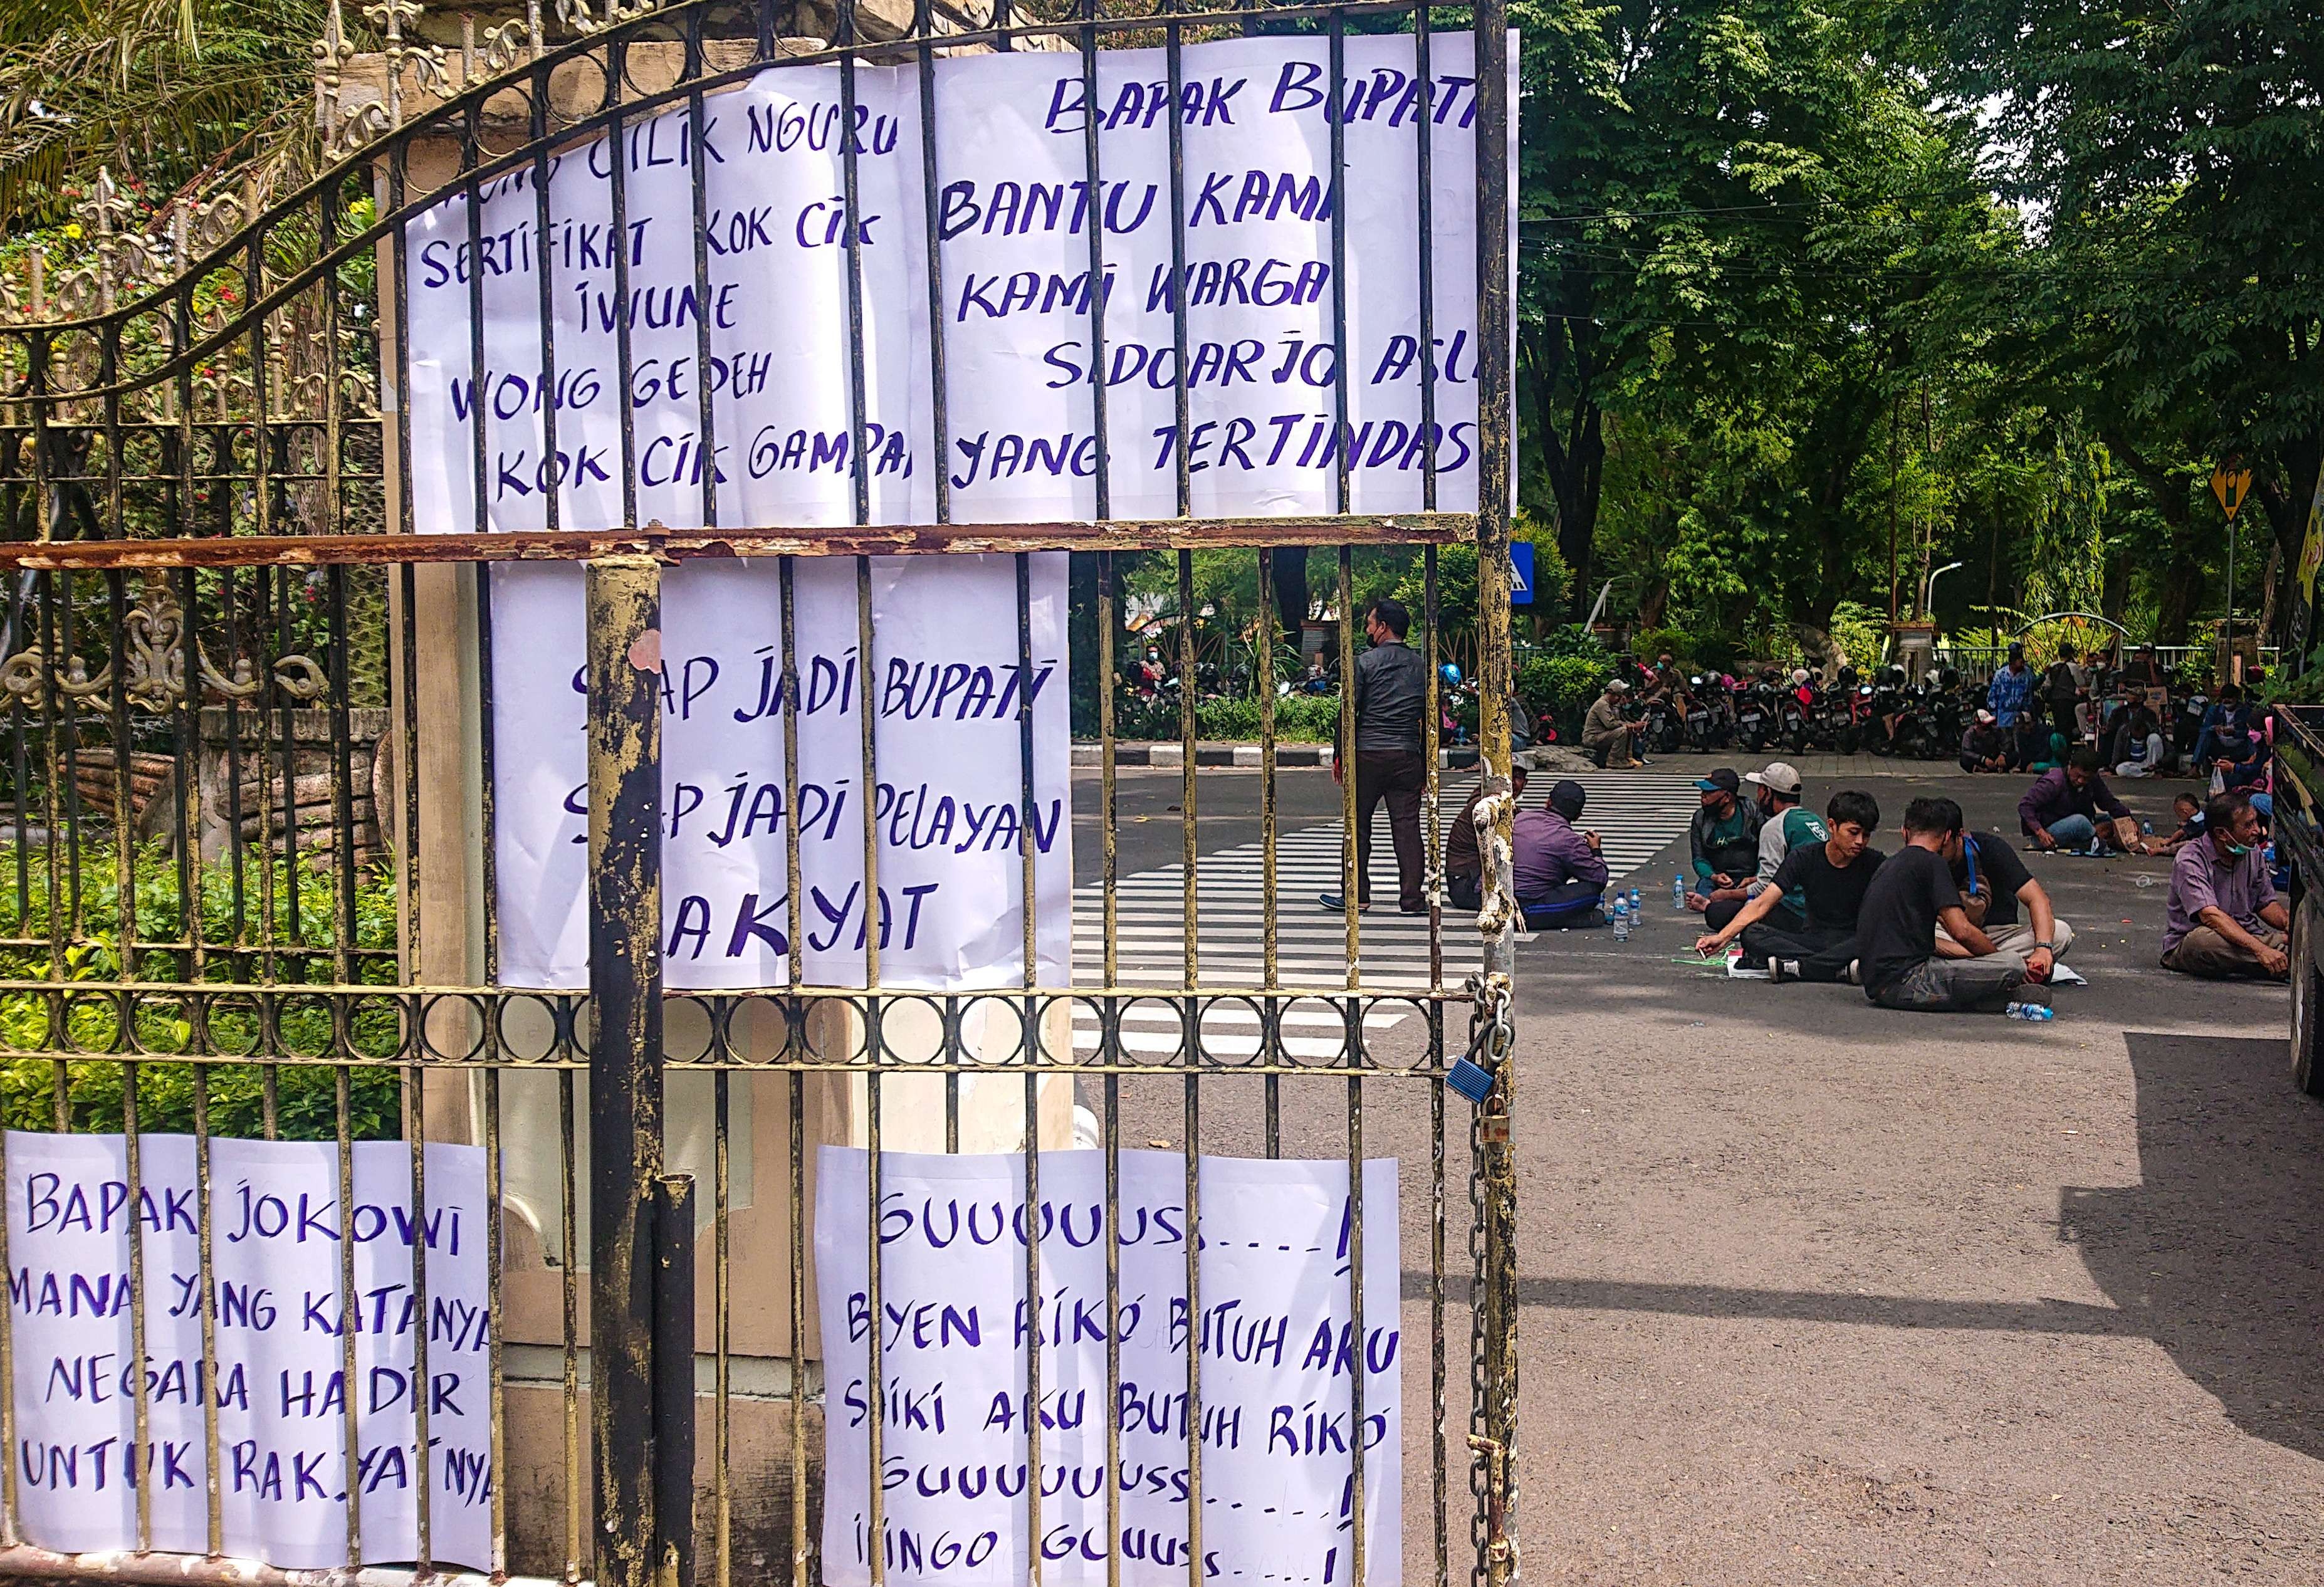 WONG CILIK NGURU
SERTIFIKAT KOK CIK
IWUNE
WONG GEDEH
KOK CIK GAMPA
BAPAK BUPATI
BANTU KAMI
KAMI WARGA
SIDOARJO ASLI
YANG TERTINDAS
SIAP JADI BUPATI
SIAP JADI PELAYAN
RAKYAT
BAPAK JOKOWI
MANA YANG KATANYA
NEGARA HADIR
UNTUK RAKYATNYA
GUUUUUSS.....!
BIYEN RIKO BUTUH AKU
SAIKI AKU BUTUH RIKO
GUUUUUUSS.....!
ILINGO GUUUSS.....!